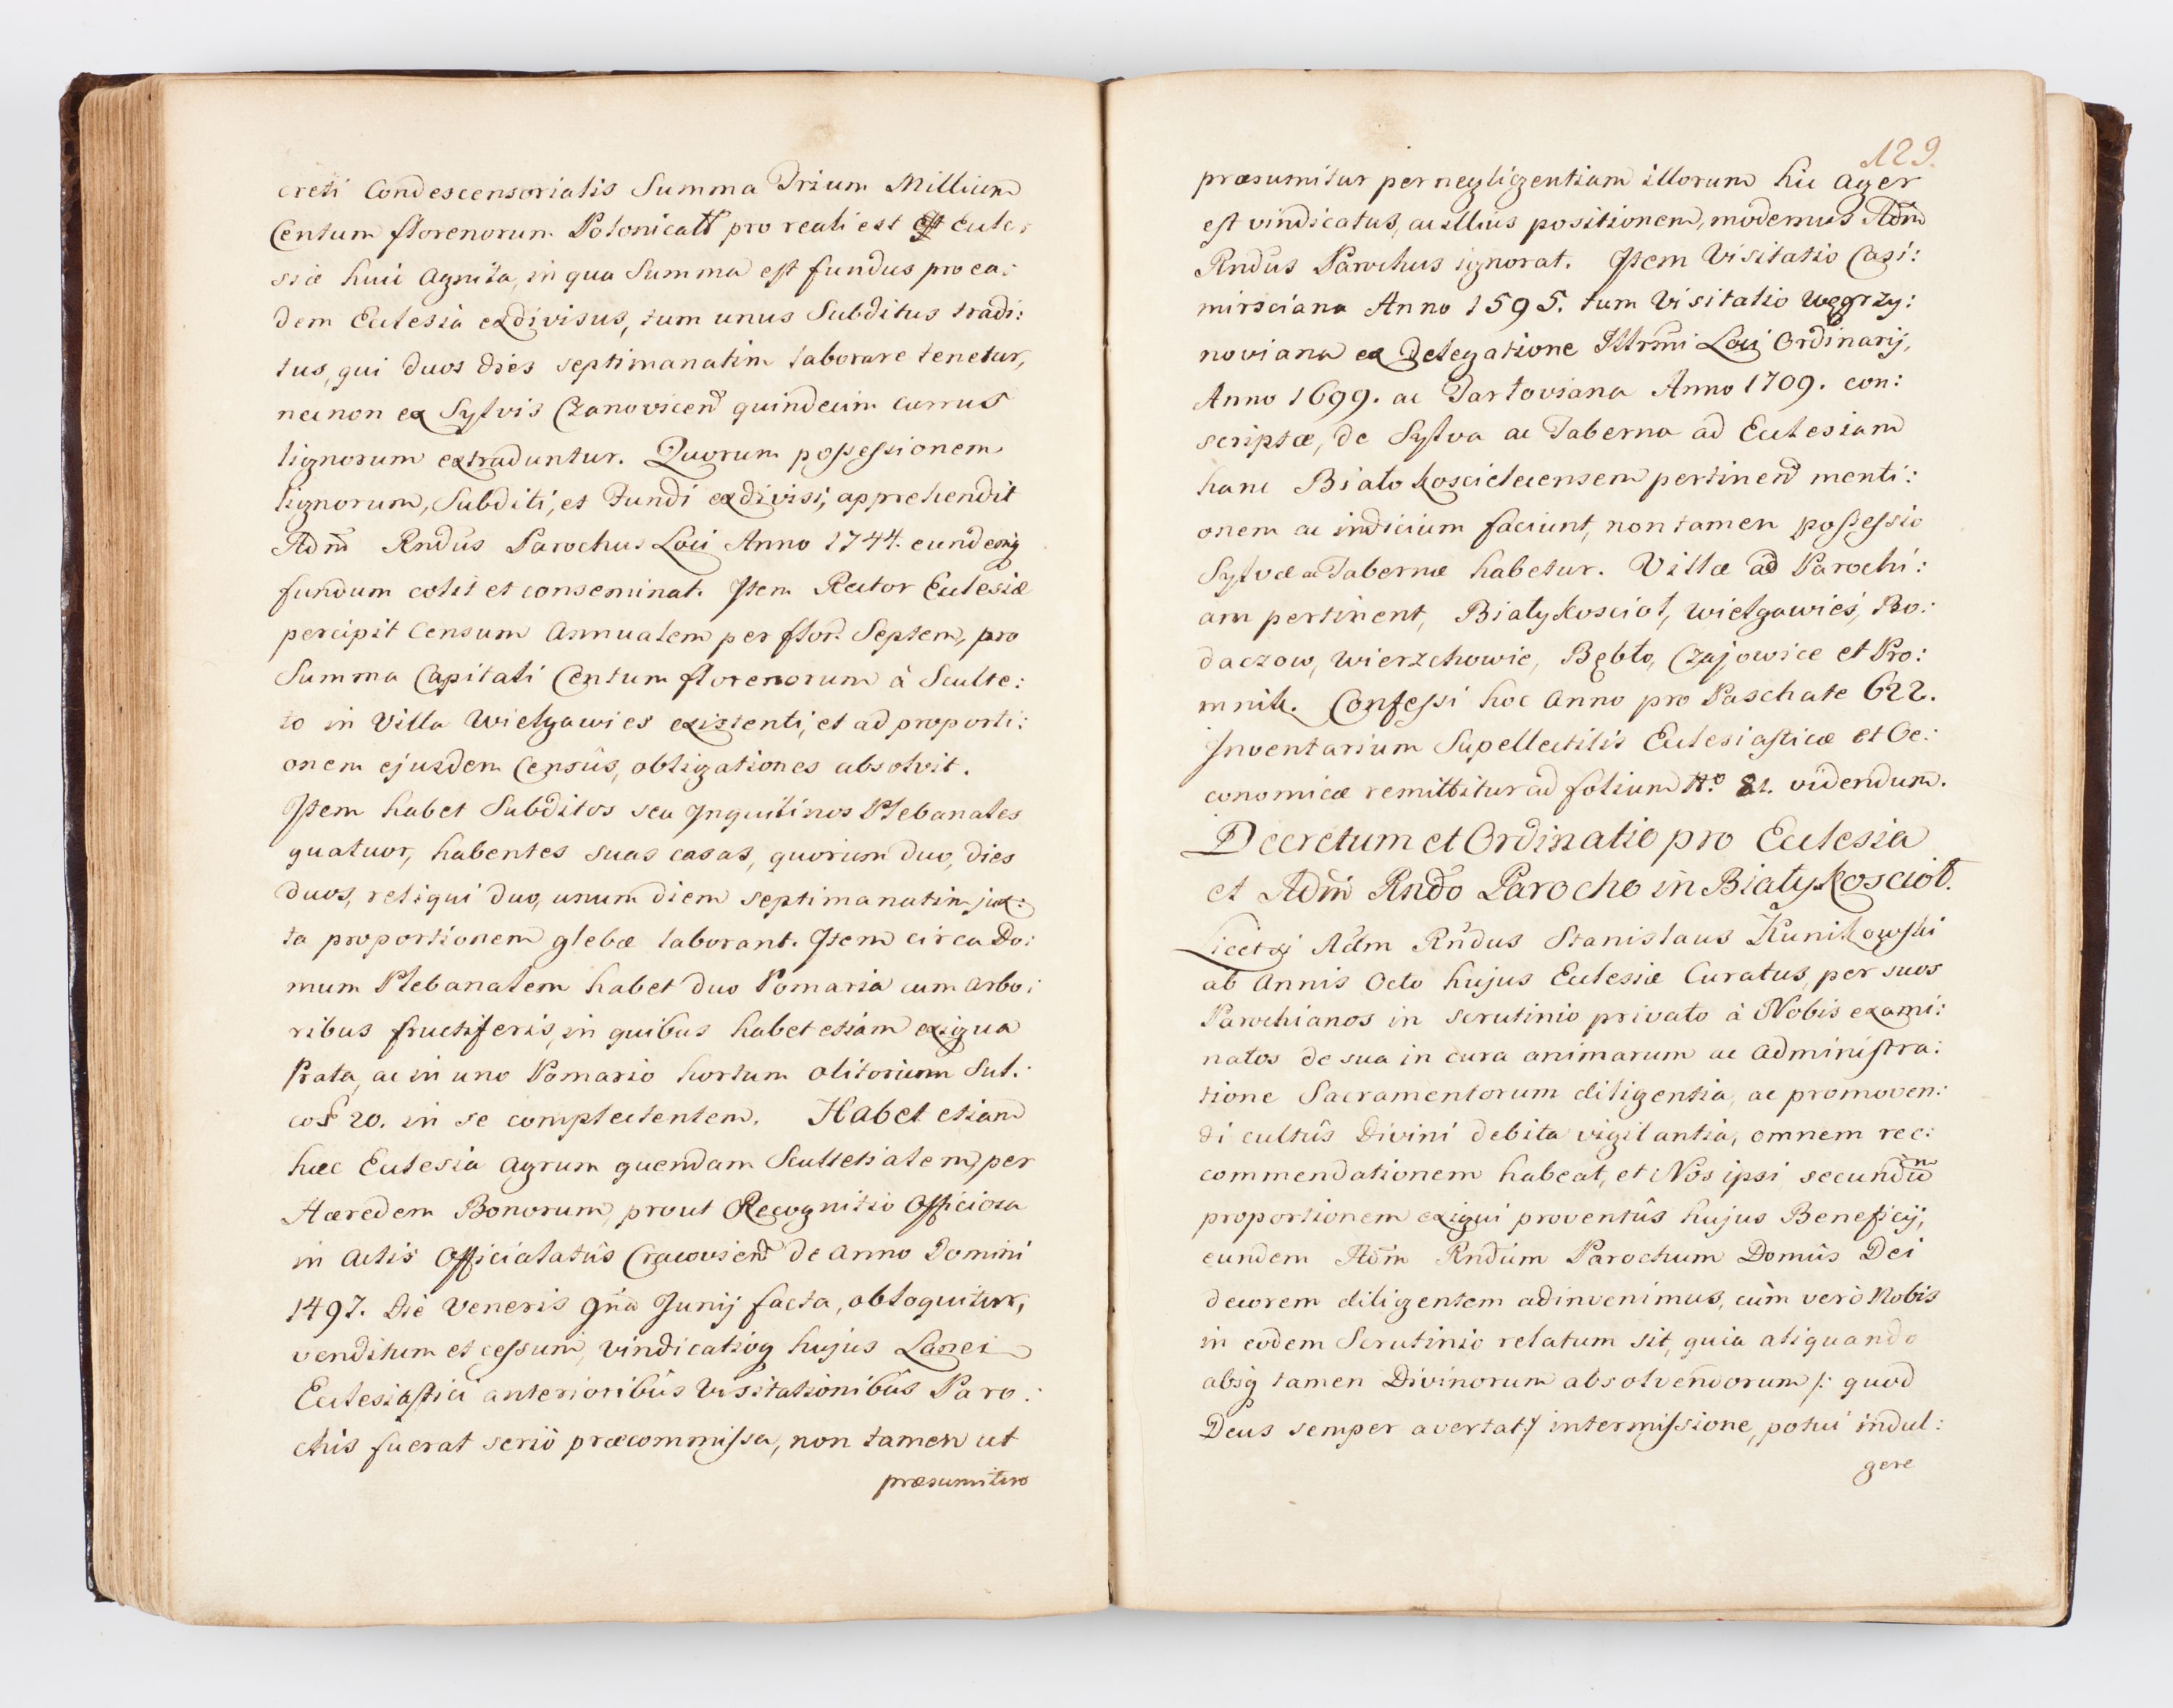 creti Condescensorialis Summa Trium Millium
Centum florenorum Polonicall pro reali est Eccle:
siæ huic Agnita, in qua Summa est fundus pro ea:
dem Ecclesia exdivisus, tum unus Subditus tradi:
tus, qui duos dies septimanatim laborare tenetur,
necnon ex Sylvis Czanovicen̄ quindecim currus
lignorum extraduntur. Quorum possessionem
lignorum, Subditi, et Fundi exdivisi, apprehendit
Adm̄ Rndus Parochus Loci Anno 1744. eundemq
fundum colit et conseminat. Item Rector Ecclesiæ
percipit Censum Annualem per flor. Septem, pro
Summa Capitali Centum florenorum à Sculte:
to in Villa Wielgawies existenti, et ad proporti:
onem ejusdem Censûs, obligationes absolvit.
Item habet Subditos seu Inquilinos Plebanales
quatuor, habentes suas casas, quorum duo, dies
duos, reliqui duo, unum diem septimanatim jux:
ta proportionem glebæ laborant. Item circa Do:
mum Plebanalem habet duo Pomaria cum arbo:
ribus fructiferis, in quibus habet etiam exigua
Prata, ac in uno Pomario hortum olitorium Sul:
cos 20. in se complectentem. Habet etiam
hæc Ecclesia Agrum quendam Scultetialem, per
Hæredem Bonorum, prout Recognitio Officiosa
in Actis Officialatûs Cracovien̄ de Anno Domini
1497. Die Veneris 9na Junij facta, obloquitur,
venditum et cessum, vindicatioq hujus Lanei
Ecclesiastici anterioribûs Visitationibûs Paro:
chis fuerat seriò præcommissa, non tamen ut
præsumitur
129.
præsumitur per negligentiam illorum hic Ager
est vindicatus, ac illius positionem, modernus Adm̄
Rndus Parochus ignorat. Item Visitatio Casi:
mirsciana Anno 1595. tum Visitatio Węgrzy:
noviana ex Delegatione Illrmi Loci Ordinarij,
Anno 1699. ac Tarłoviana Anno 1709. con:
scriptæ, de Sylva ac Taberna ad Ecclesiam
hanc Białokoscielecensem pertinen̄ menti:
onem ac indicium faciunt, non tamen possessio
Sylvæ ac Tabernæ habetur. Villæ ad Parochi:
am pertinent, Białykoscioł, Wielgawieś, Bo:
daczow, Wierzchowie, Bębło, Czajowice et Pro:
mnik. Confessi hoc Anno pro Paschate 622.
Inventarium Supellectilis Ecclesiasticæ et Oe:
conomicæ remittitur ad folium Nº 81. videndum.
Decretum et Ordinatio pro Ecclesia
et Adm̄ Rndo Parocho in Białykoscioł.
Licet Adm Rndus Stanislaus Kunikowski
ab Annis Octo hujus Ecclesiæ Curatus, per suos
Parochianos in scrutinio privato à Nobis exami:
natos de sua in cura animarum ac administra:
tione Sacramentorum diligentia, ac promoven:
di cultûs Divini debita vigilantia, omnem rec:
commendationem habeat, et Nos ipsi secundum
proportionem exigui proventûs hujus Beneficij,
eundem Adm̄ Rndum Parochum Domûs Dei
decorem diligentem adinvenimus, cùm verò Nobis
in eodem Scrutinio relatum sit, quia aliquando
absq tamen Divinorum absolvendorum /: quod
Deus semper avertat :/ intermissione, potui indul:
gere